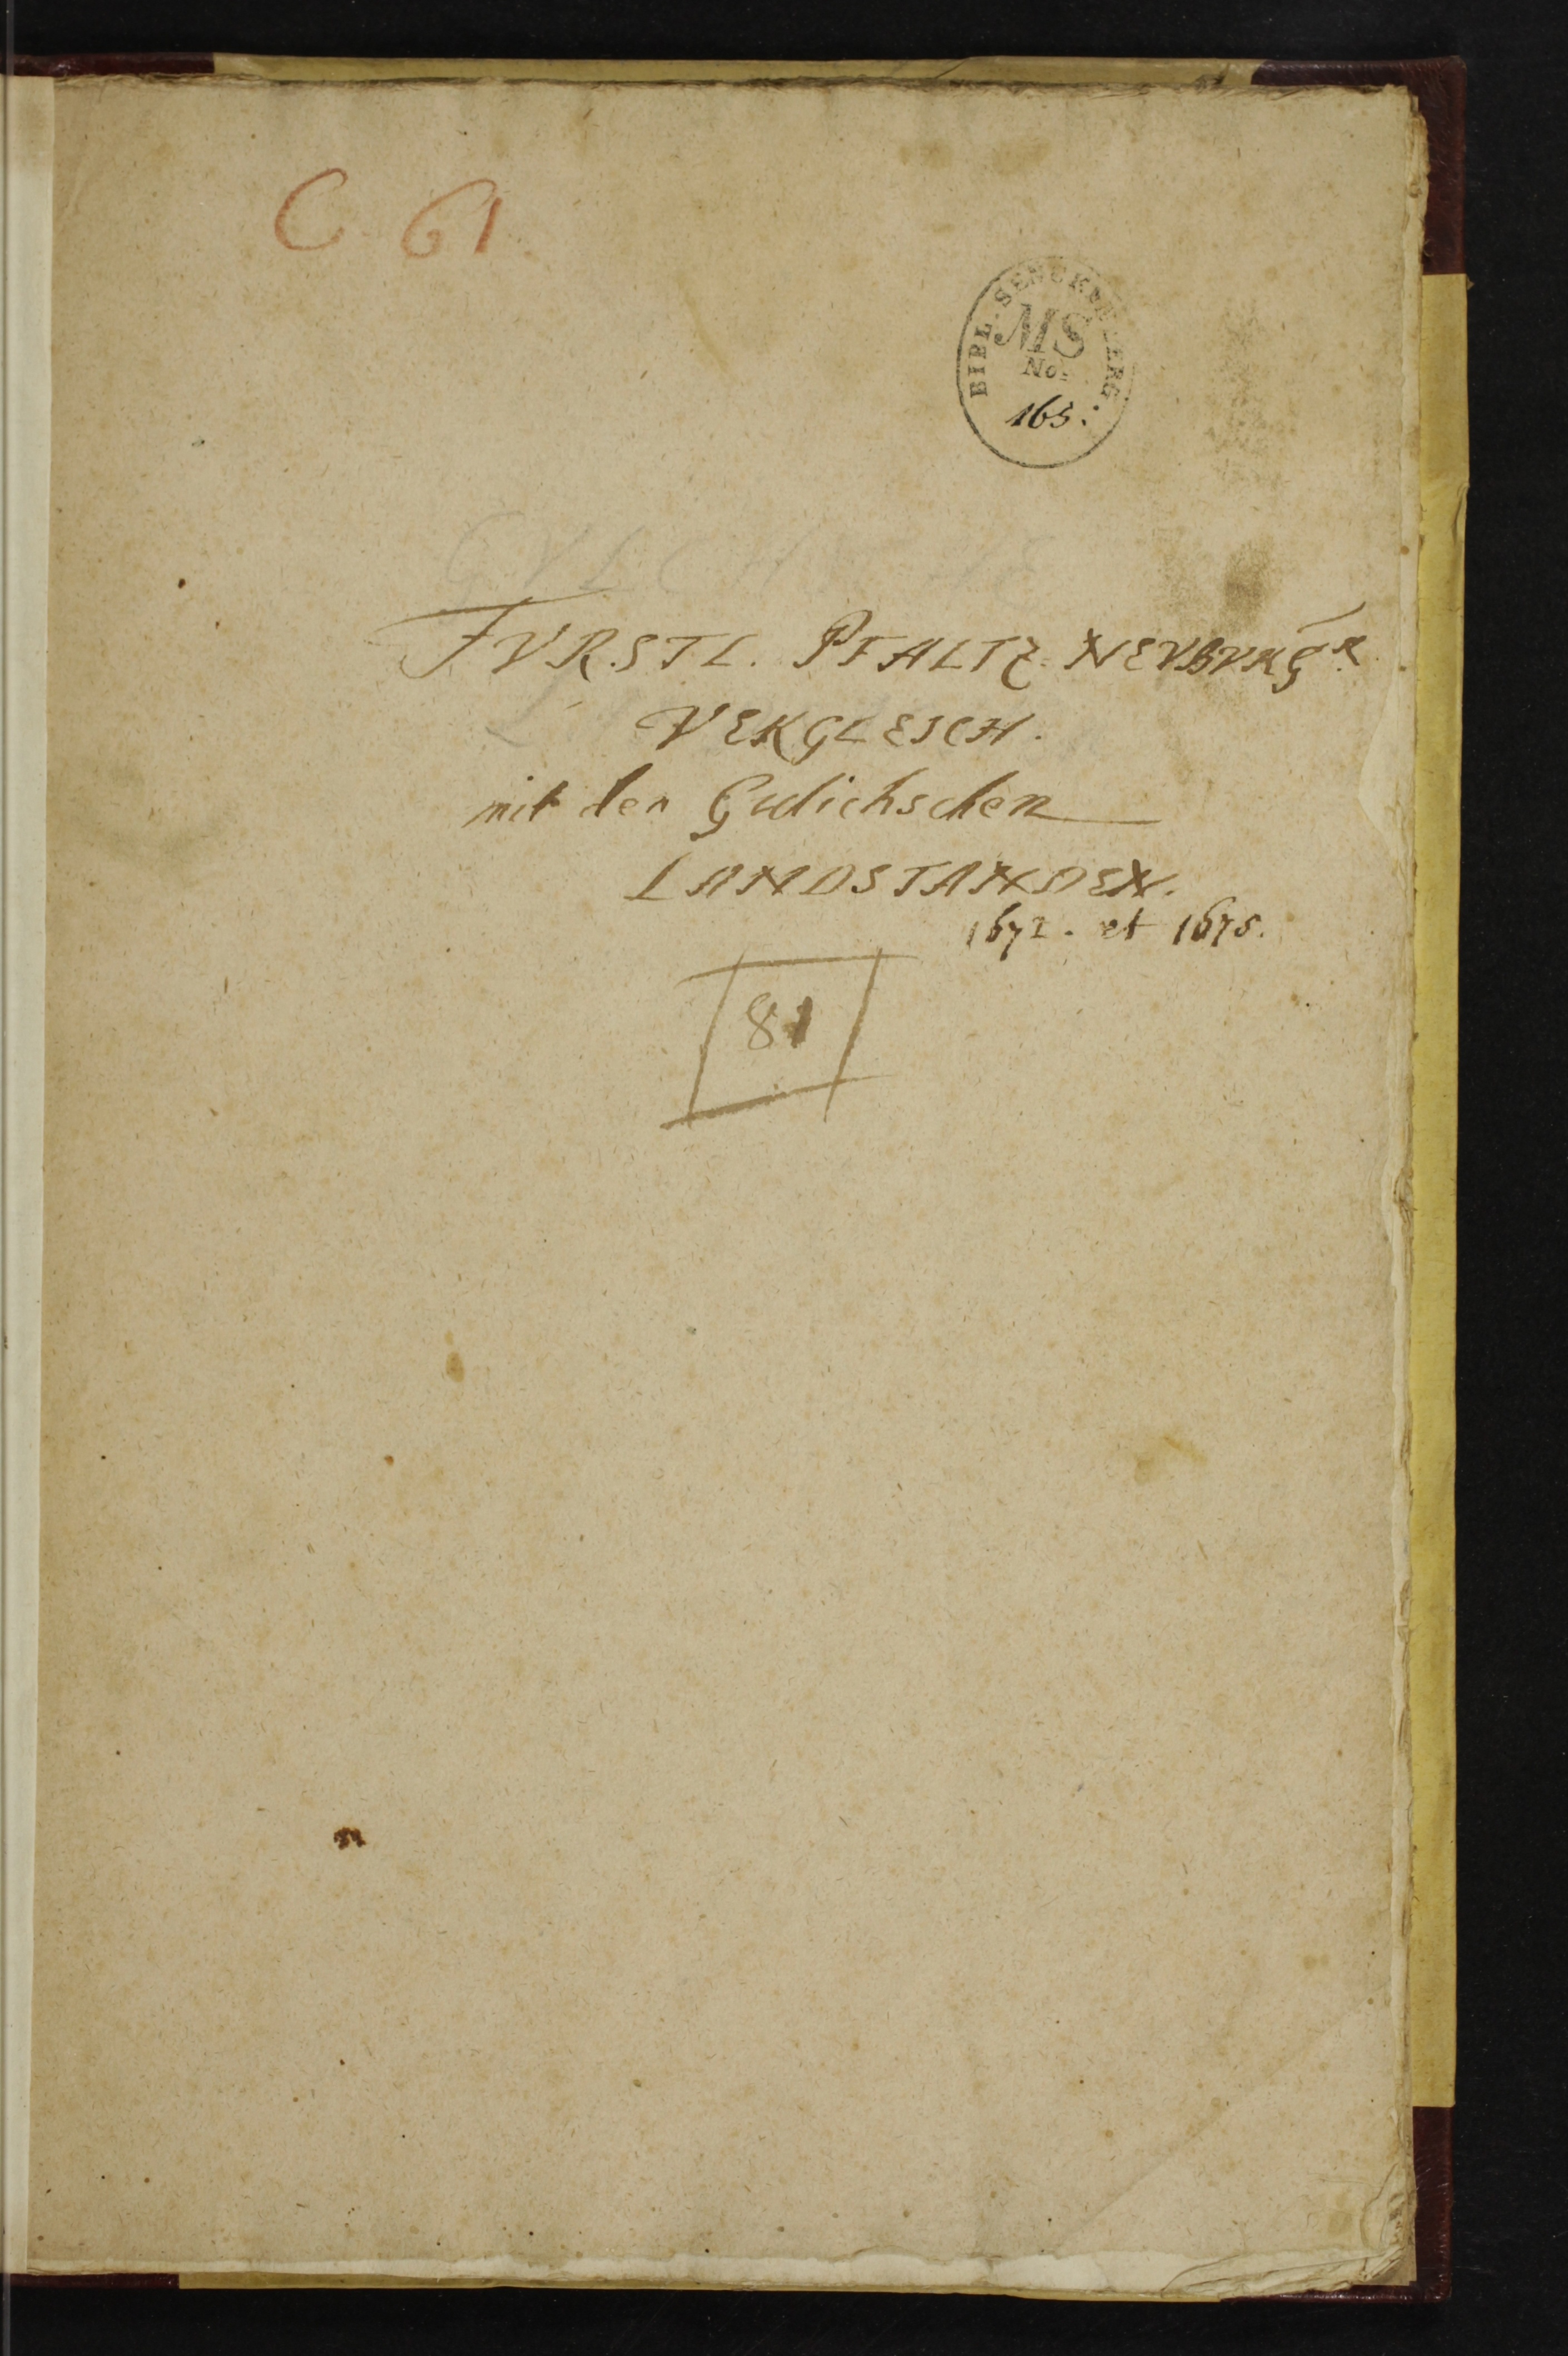 C 61
BIBL. SENCKENBERG.
MS
No:
165.
FVRSTL. PFALTZ=NEVBVRG^R
VERGLEICH.
mit den Gulichschen
LANDSTANDEN.
1672. et 1675.
81